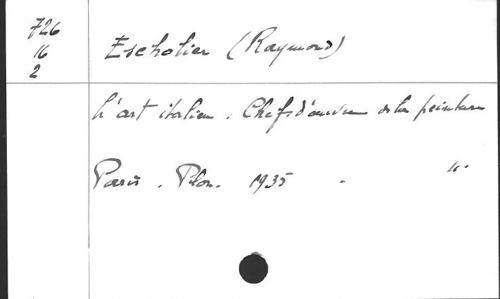 726
16
2
Escholier (Raymond)
L'art italien. Chefs d'œuvre de la peinture
Paris. Plon. 1935 -